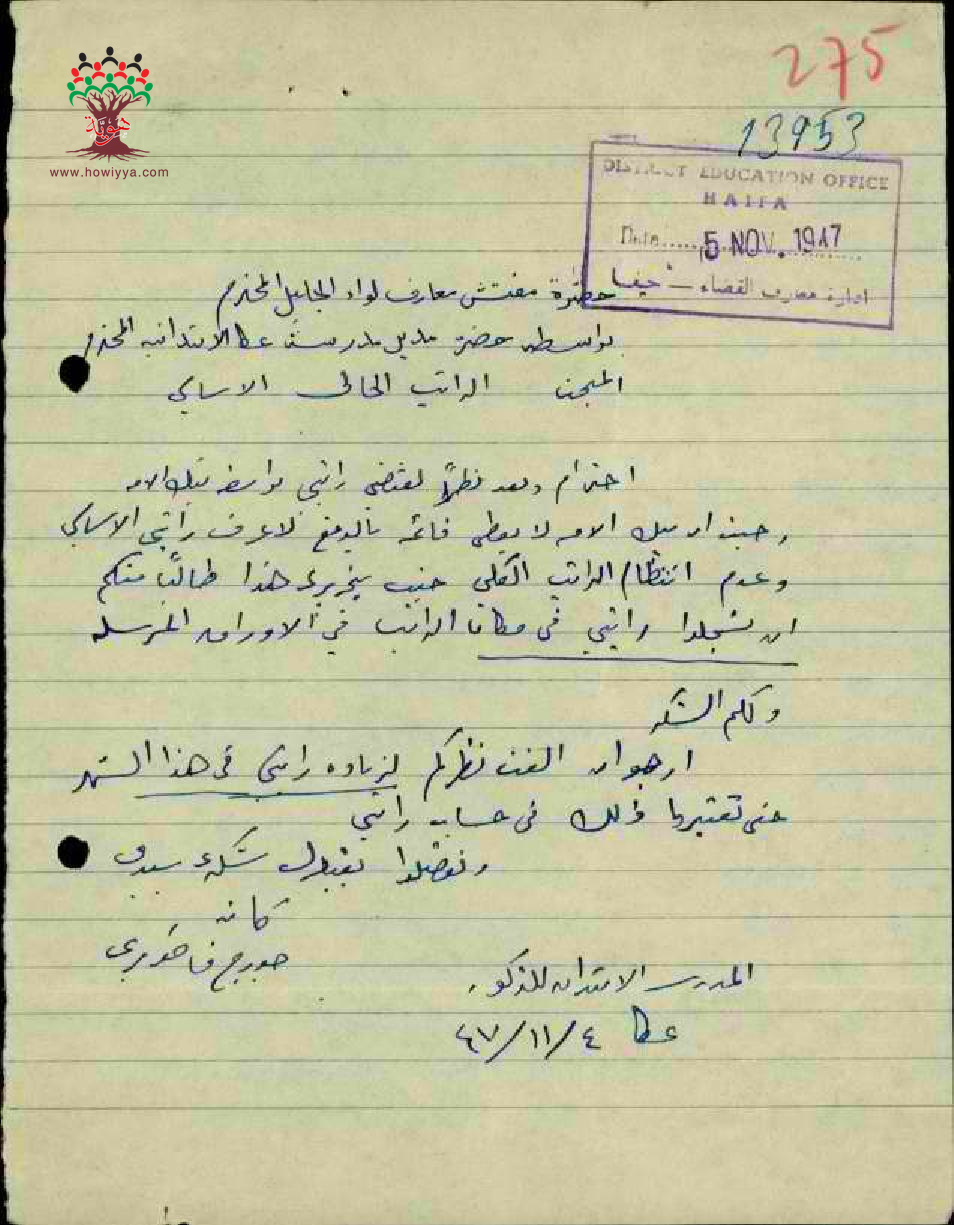 275
13953
هوية
www.howiyya.com
DISTRICT EDUCATION OFFICE
HAIFA
Date..... 5 NOV. 1947
ادارة معارف القضاء – حيفا
حضرة مفتش معارف لواء الجليل المحترم
بواسطة حضرة مدير مدرسة عكا الابتدائية المحترم
المبحث الراتب الحالي الاساسي
احترام وبعد نظراً لقبضي راتبي بواسطة بنك الامه
وحيث ان بنك الامه لا يعطي قائمة بالدفع لاعرف راتبي الاساسي
وعدم انتظام الراتب الكلي جئت بتحريري هذا طالبًا منكم
ان تسجلوا راتبي في مكان الراتب في الاوراق المرسله
ولكم الشكر
ارجو ان الفت نظركم لزيادة راتبي في هذا الشهر
حتى تعتبروا ذلك في حساب راتبي
وتفضلوا بقبول شكري سيدي
كاتبه
جورج فاخوري
المدرسة الابتدائية للذكور
عكا ٤/١١/٤٧